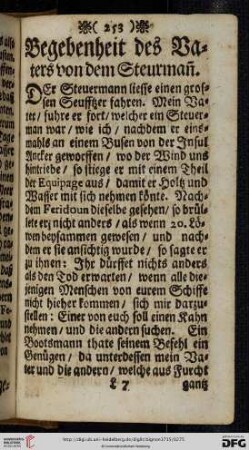 ( 253 )
Begebenheit des Va-
ters von dem Steurmañ.
DEr Steuermann liesse einen gros-
sen Seufftzer fahren. Mein Va-
ter/ fuhre er fort/ welcher ein Steuer-
man war/ wie ich/ nachdem er eins-
mahls an einem Busen von der Insul
Ancker geworffen/ wo der Wind uns
hintriebe/ so stiege er mit einem Theil
der Equipage aus/ damit er Holtz und
Wasser mit sich nehmen könte. Nach-
dem Feridoun dieselbe gesehen/ so brül-
lete er nicht anders/ als wenn 20. Lö-
wen beysammen gewesen/ und nach-
dem er sie ansichtig wurde/ so sagte er
zu ihnen: Ihr dürffet nichts anders
als den Tod erwarten/ wenn alle die-
jenigen Menschen von eurem Schiffe
nicht hieher kommen/ sich mir darzu-
stellen: Einer von euch soll einen Kahn
nehmen/ und die andern suchen. Ein
Bootsmann thate seinem Befehl ein
Genügen/ da unterdessen mein Va-
ter und die andern/ welche aus Furcht
L 7 gantz
http://digi.ub.uni-heidelberg.de/diglit/bignon1719/0275
© Universitätsbibliothek Heidelberg